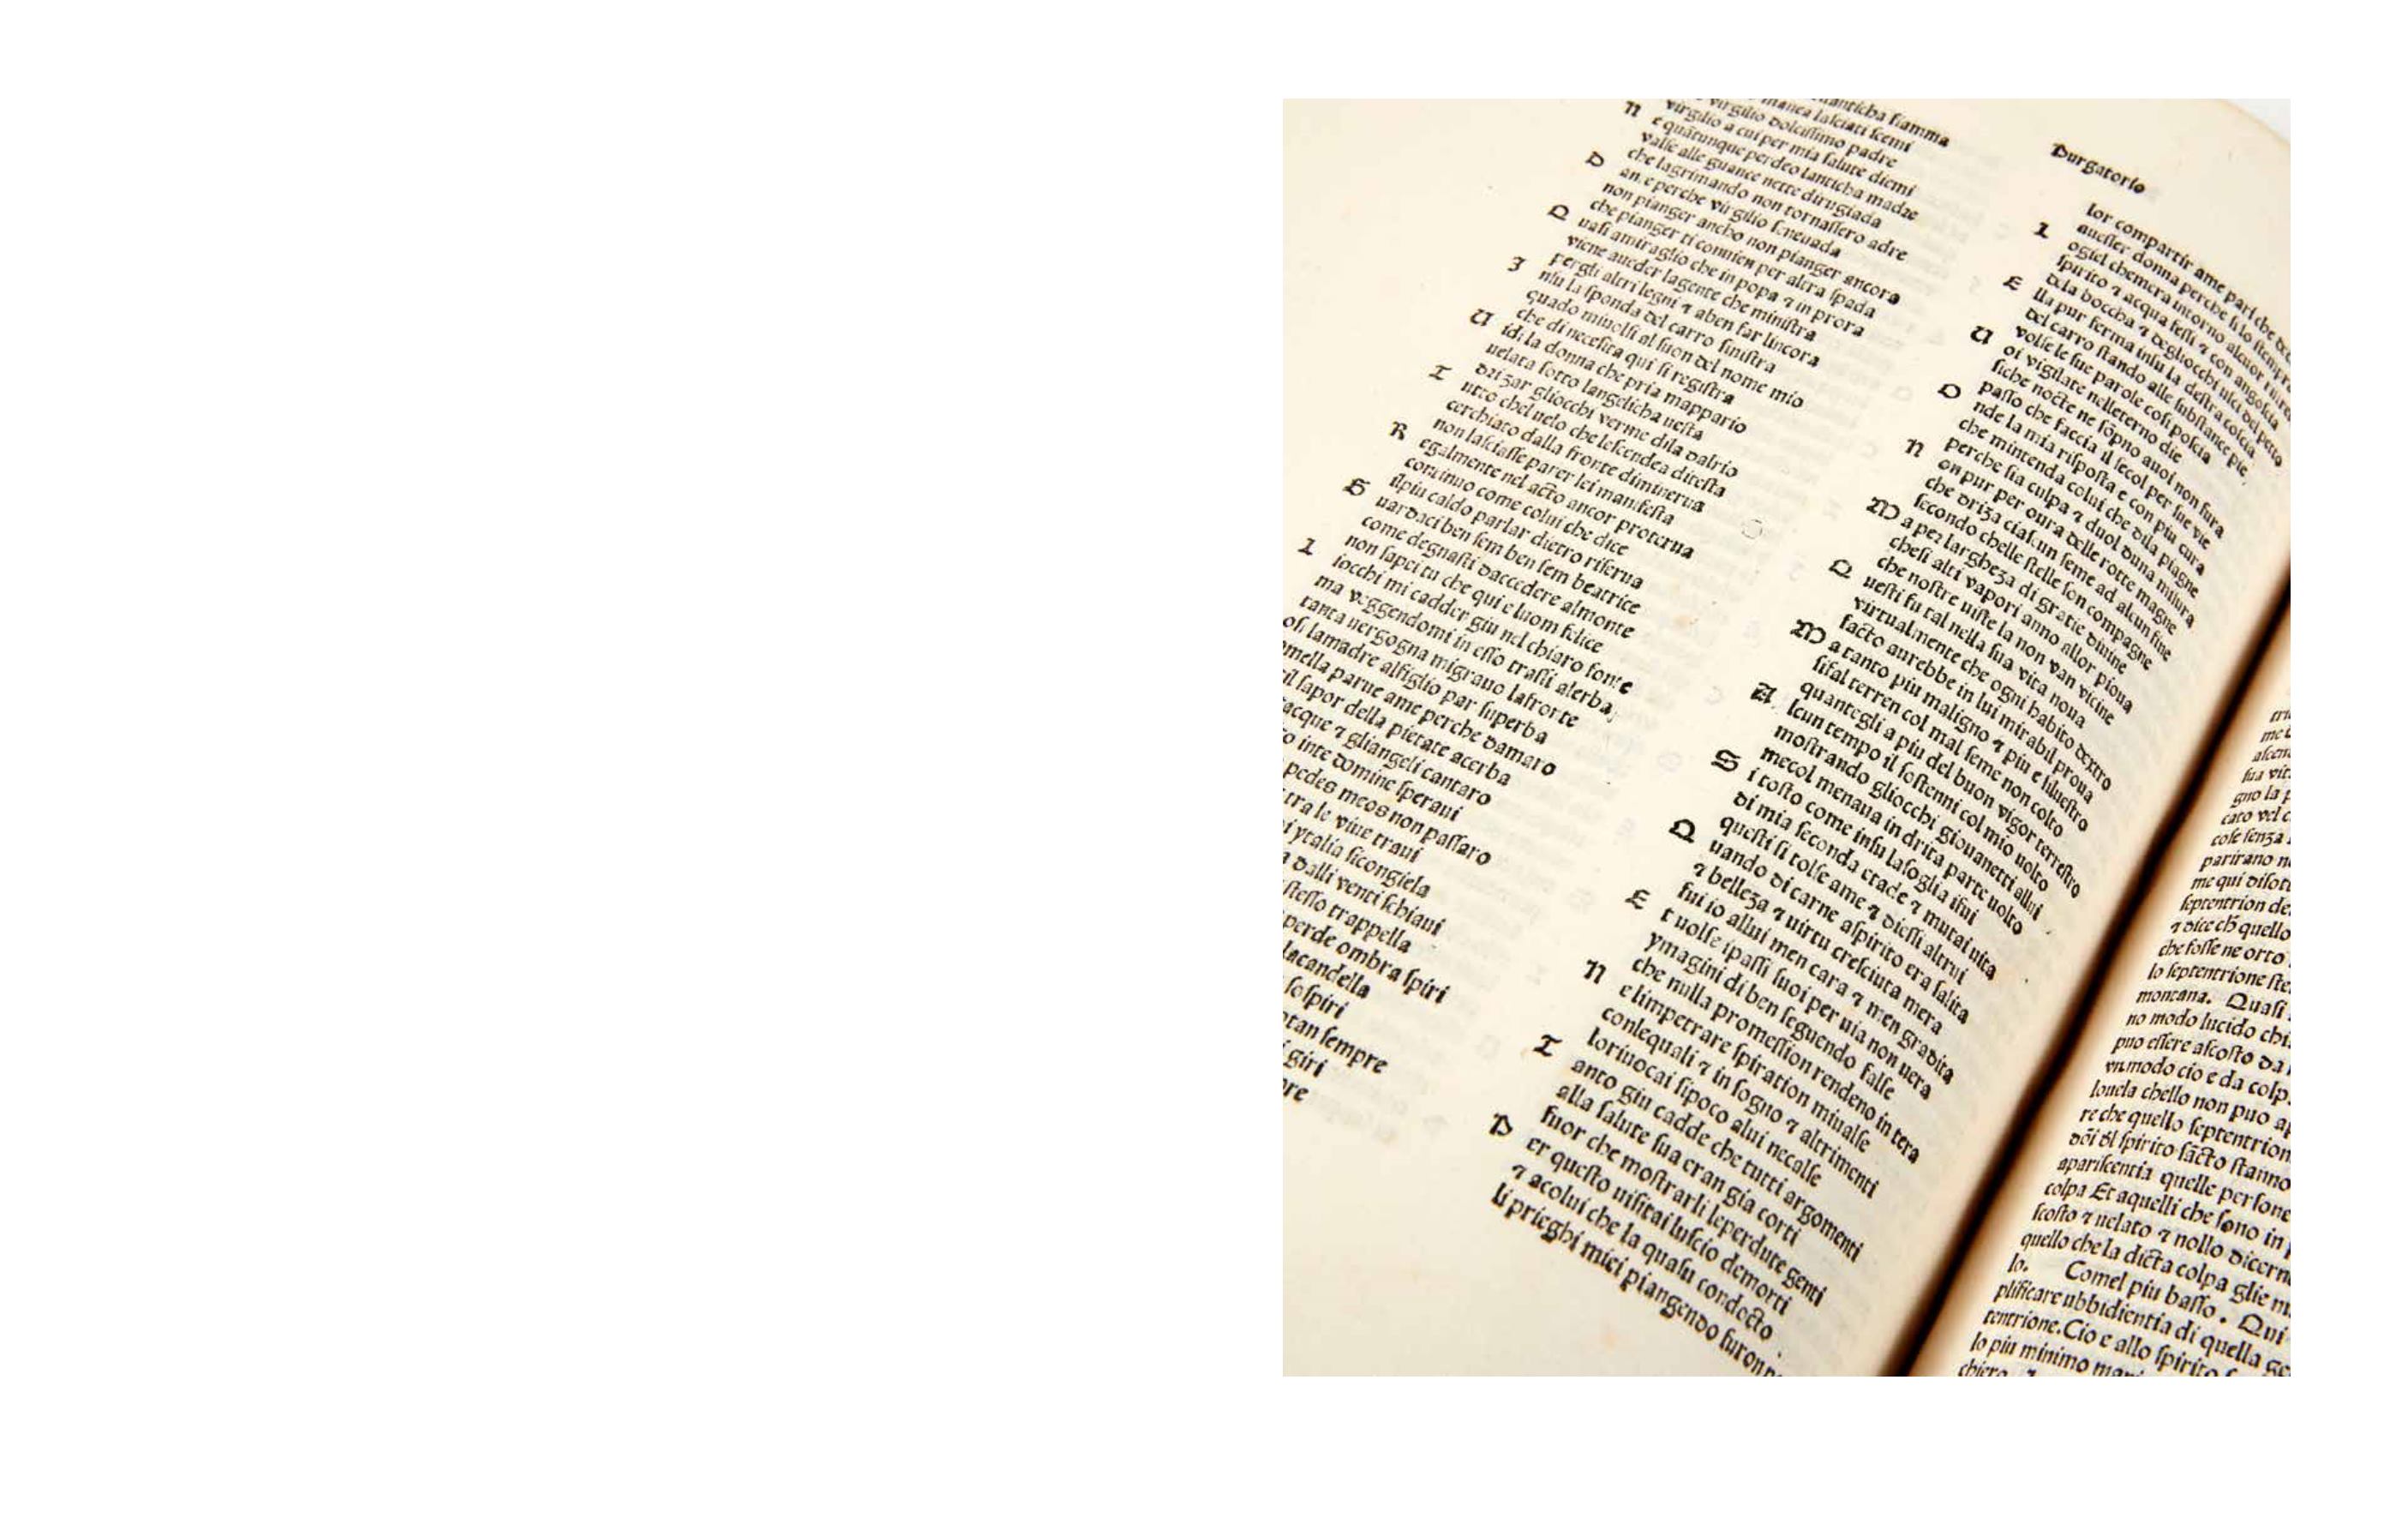 lanticha fiamma
manea laſciati ſcemi
virgilio dolciſſimo padre
virgilio a cui per mia ſalute diemi
N e quãtunque perdeo lanticha madre
valſe alle guance nette dirugiada
che lagrimando non tornaſſero adre
D an.e perche virgilio ſeneuada
non pianger ancho non pianger ancora
che pianger ti conuien per altra ſpada
Q uaſi amiraglio che in popa ⁊ in prora
viene aueder lagente che miniſtra
per gli altri legni ⁊ aben far lincora
I nſu la ſponda del carro ſiniſtra
quado miuolſi al ſuon del nome mio
che di neceſita qui ſi regiſtra
U idi la donna che pria mappario
uelata ſotto langelicha ueſta
drizar gliocchi verme dila dalrio
T utto chel uelo che leſcendea diteſta
cerchiato dalla fronte diminerua
non laſciaſſe parer lei manifeſta
R egalmente nel acto ancor proterua
continuo come colui che dice
ilpiu caldo parlar dietro riſerua
G uardaci ben ſem ben ſem beatrice
come degnaſti daccedere almonte
non ſapei tu che qui e luom felice
L iocchi mi cadder giu nel chiaro fonte
ma veggendomi in eſſo traſſi alerba
tanta uergogna migrauo lafronte
oſi lamadre alfiglio par ſuperba
mella parue ame perche damaro
il ſapor della pietate acerba
acque ⁊ gliangeli cantaro
o inte domine ſperaui
pedes meos non paſſaro
tra le viue traui
i ytalia ſicongiela
dalli venti ſchiaui
ſteſſo trappella
perde ombra ſpiri
lacandella
ſoſpiri
tan ſempre
giri
re
Purgatorio
lor compartir ame pari che
L aueſſer donna perche ſi lo ſtempre
ogiel chemera intorno alcuor
ſpirito ⁊ acqua feſſi ⁊ con angoſcia
dela boccha ⁊ degliocchi uſci del petto
E lla pur ferma inſu la deſtra coſcia
del carro ſtando alle ſubſtance pie
volſe le ſue parole coſi poſcia
U oi vigilate nelleterno die
ſiche nocte ne ſopno auoi non fura
paſſo che faccia il ſecol per ſue vie
O nde la mia riſpoſta e con piu cura
che mintenda colui che dila piagne
perche ſia culpa ⁊ duol duna miſura
N on pur per oura delle rotte magne
che driza ciaſcun ſeme ad alcun fine
ſecondo chelle ſtelle ſon compagne
M a per largheza di gratie diuine
cheſi alti vapori anno allor pioua
che noſtre uiſte la non van vicine
Q ueſti fu tal nella ſua vita noua
virtualmente che ogni habito dextro
facto aurebbe in lui mirabil proua
M a tanto piu maligno ⁊ piu e ſilueſtro
ſifal terren col mal ſeme non colto
quantegli a piu del buon vigor terreſtro
A lcun tempo il ſoſtenni col mio uolto
moſtrando gliocchi giouanetti allui
mecol menaua in drita parte uolto
S i toſto come inſu laſoglia ifui
di mia ſeconda etade ⁊ mutai uita
queſti ſi tolſe ame ⁊ dieſſi altrui
Q uando di carne aſpirito era ſalita
⁊ belleza ⁊ uirtu creſciuta mera
fui io allui men cara ⁊ men gradita
E t uolſe ipaſſi ſuoi per uia non uera
ymagini di ben ſeguendo falſe
che nulla promeſſion rendeno intera
N e limpetrare ſpiration miualſe
conlequali ⁊ in ſogno ⁊ altrimenti
loriuocai ſipoco alui necalſe
T anto giu cadde che tutti argomenti
alla ſalute ſua eran gia corti
fuor che moſtrarli leperdute genti
P er queſto uiſitai luſcio demorti
⁊ acolui che la quaſu condocto
li prieghi miei piangendo furon
me
aſcen
ſua vit
gno la p
cato vel c
coſe ſenza
parirano n
me qui diſot
ſeptentrion de
⁊ dice ch̃ quello
che foſſe ne orto
lo ſeptentrione ſte
montana. Quaſi
no modo lucido chi
puo eſſere aſcoſto da
vn modo cio e da colp
louela chello non puo ap
re che quello ſeptentrion
dõi dl ſpirito ſãcto ſtanno
apariſcentia quelle perſone
colpa Et aquelli che ſono in
ſcoſto ⁊ uelato ⁊ nollo dicern
quello che la dicta colpa glie
lo. Comel piu baſſo. Qui
plificare ubbidientia di quella ge
tentrione. Cio e allo ſpirito
lo piu minimo
chiero